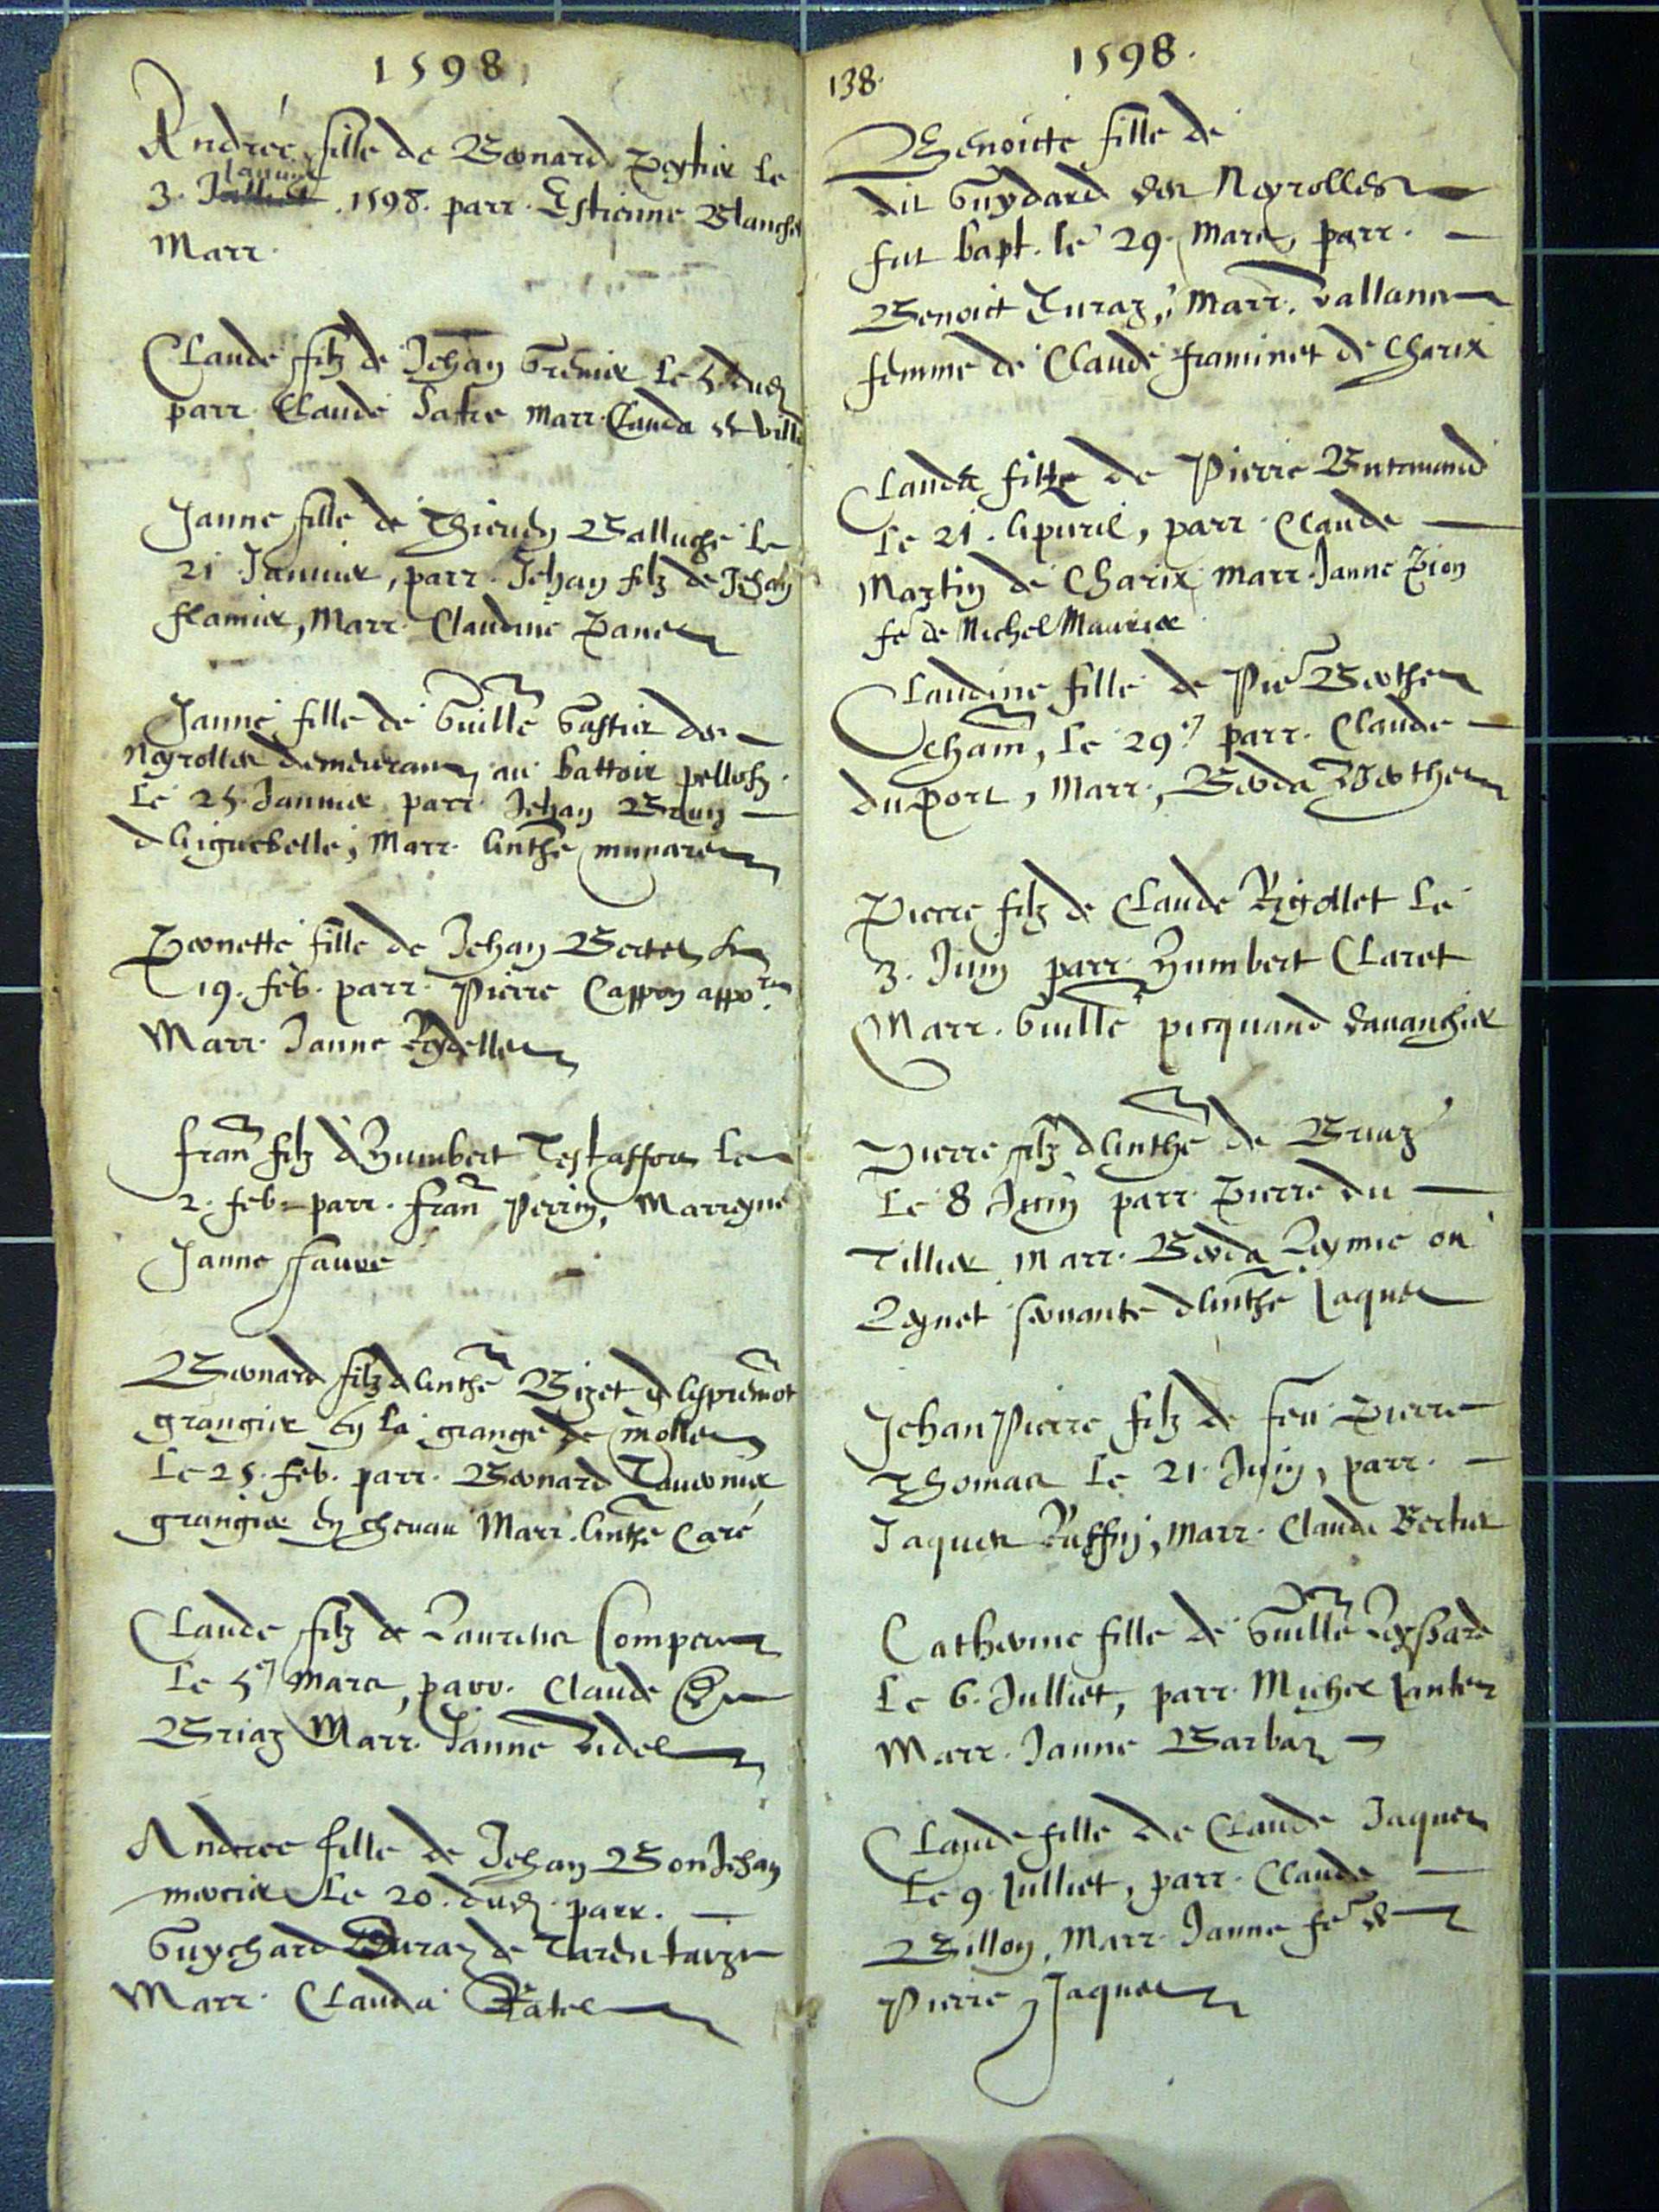 1598
Andrée fille de Bernard le
Januier
3. 1598. parr. Estienne Blanche
Marr.
Claude filz de Jehan Grenier le 5 dud
parr Claude Marr. Clauda de ville
Janne fille de Thieuen Balluche le
21 Januier, parr. Jehan filz de Jehan
flamier, Marr. Claudine Pane
Janne, fille de Guille Gastier des
Neyrolles demeurant au battoir
le 25 Januier parr Jehan Brun
d'Aiguebelle, Marr. Anthe
Pernette fille de Jehan Bertet le
19. feb. parr. Pierre Cappon
Marr. Janne Rydelle
Fran filz d'Humbert Testaffort le
2. feb. parr. Fran Perrin, Marreyne
Janne Faure
Bernard filz d'Anthe Bizet
grangier en la grange de molle
le 25. feb. parr. Bernard Tauernier
grangier en chenau Marr. Anthe Caré
Claude filz de Laurens Comper
le 5 mars, parr. Claude Du
Briaz Marr. Janne Videl
Andree fille de Jehan Bon Jehan
mercier le 20. dud. parr.
Guychard Duraz de Tarentayze
Marr. Clauda Ratel
138. 1598.
Benoitte fille de
dit Guydard des Neyrolles
fut bapt. le 29. Mars, parr.
Benoict Juraz, Marr. vallane
femme de Claude framinet de Charix
Clauda fille de Pierre
le 21. Apuril, parr. Claude
Martin de Charix Marr. Janne Pion
fe de Michel Maurier
Claudine fille de Pie Berthe
le 29 parr. Claude
du port, Marr., Berda Berthe
Pierre filz de Claude Rigollet le
3. Juin parr. Humbert Claret
Marr. Guille picquand dauanchier
Pierre filz d'Anthe de Briaz
le 8 Juin parr. Pierre du
Tillier Marr. Berda Leymie ou
Leynet seruante d'Anthe Jaques
Jehan Pierre filz de feu Pierre
Thomas le 21. Juin, parr.
Jaques Ruffin, Marr. Claude Bertier
Catherine fille de Guille
le 6. Julliet, parr. Michel Jantez
Marr. Janne Barbaz
Claude fille de Claude Jaques
le 9. Julliet, parr. Claude
Billon, Marr. Janne fe de
Pierre Jaques